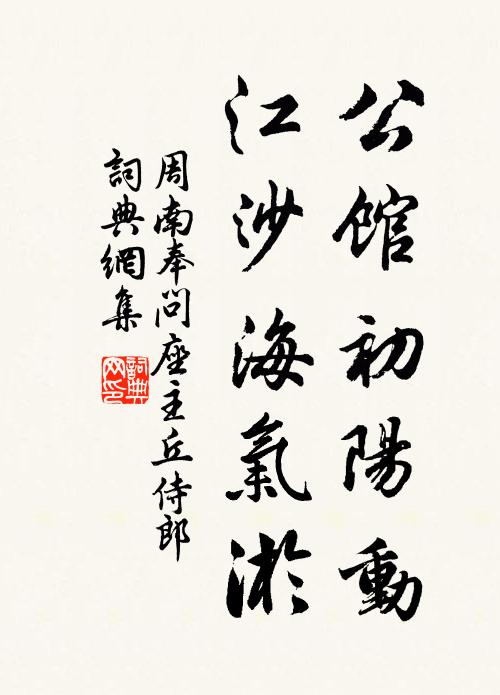 公館初陽動
江沙海氣淤
周南奉問座主丘侍郎
詞典網集
詞典網印